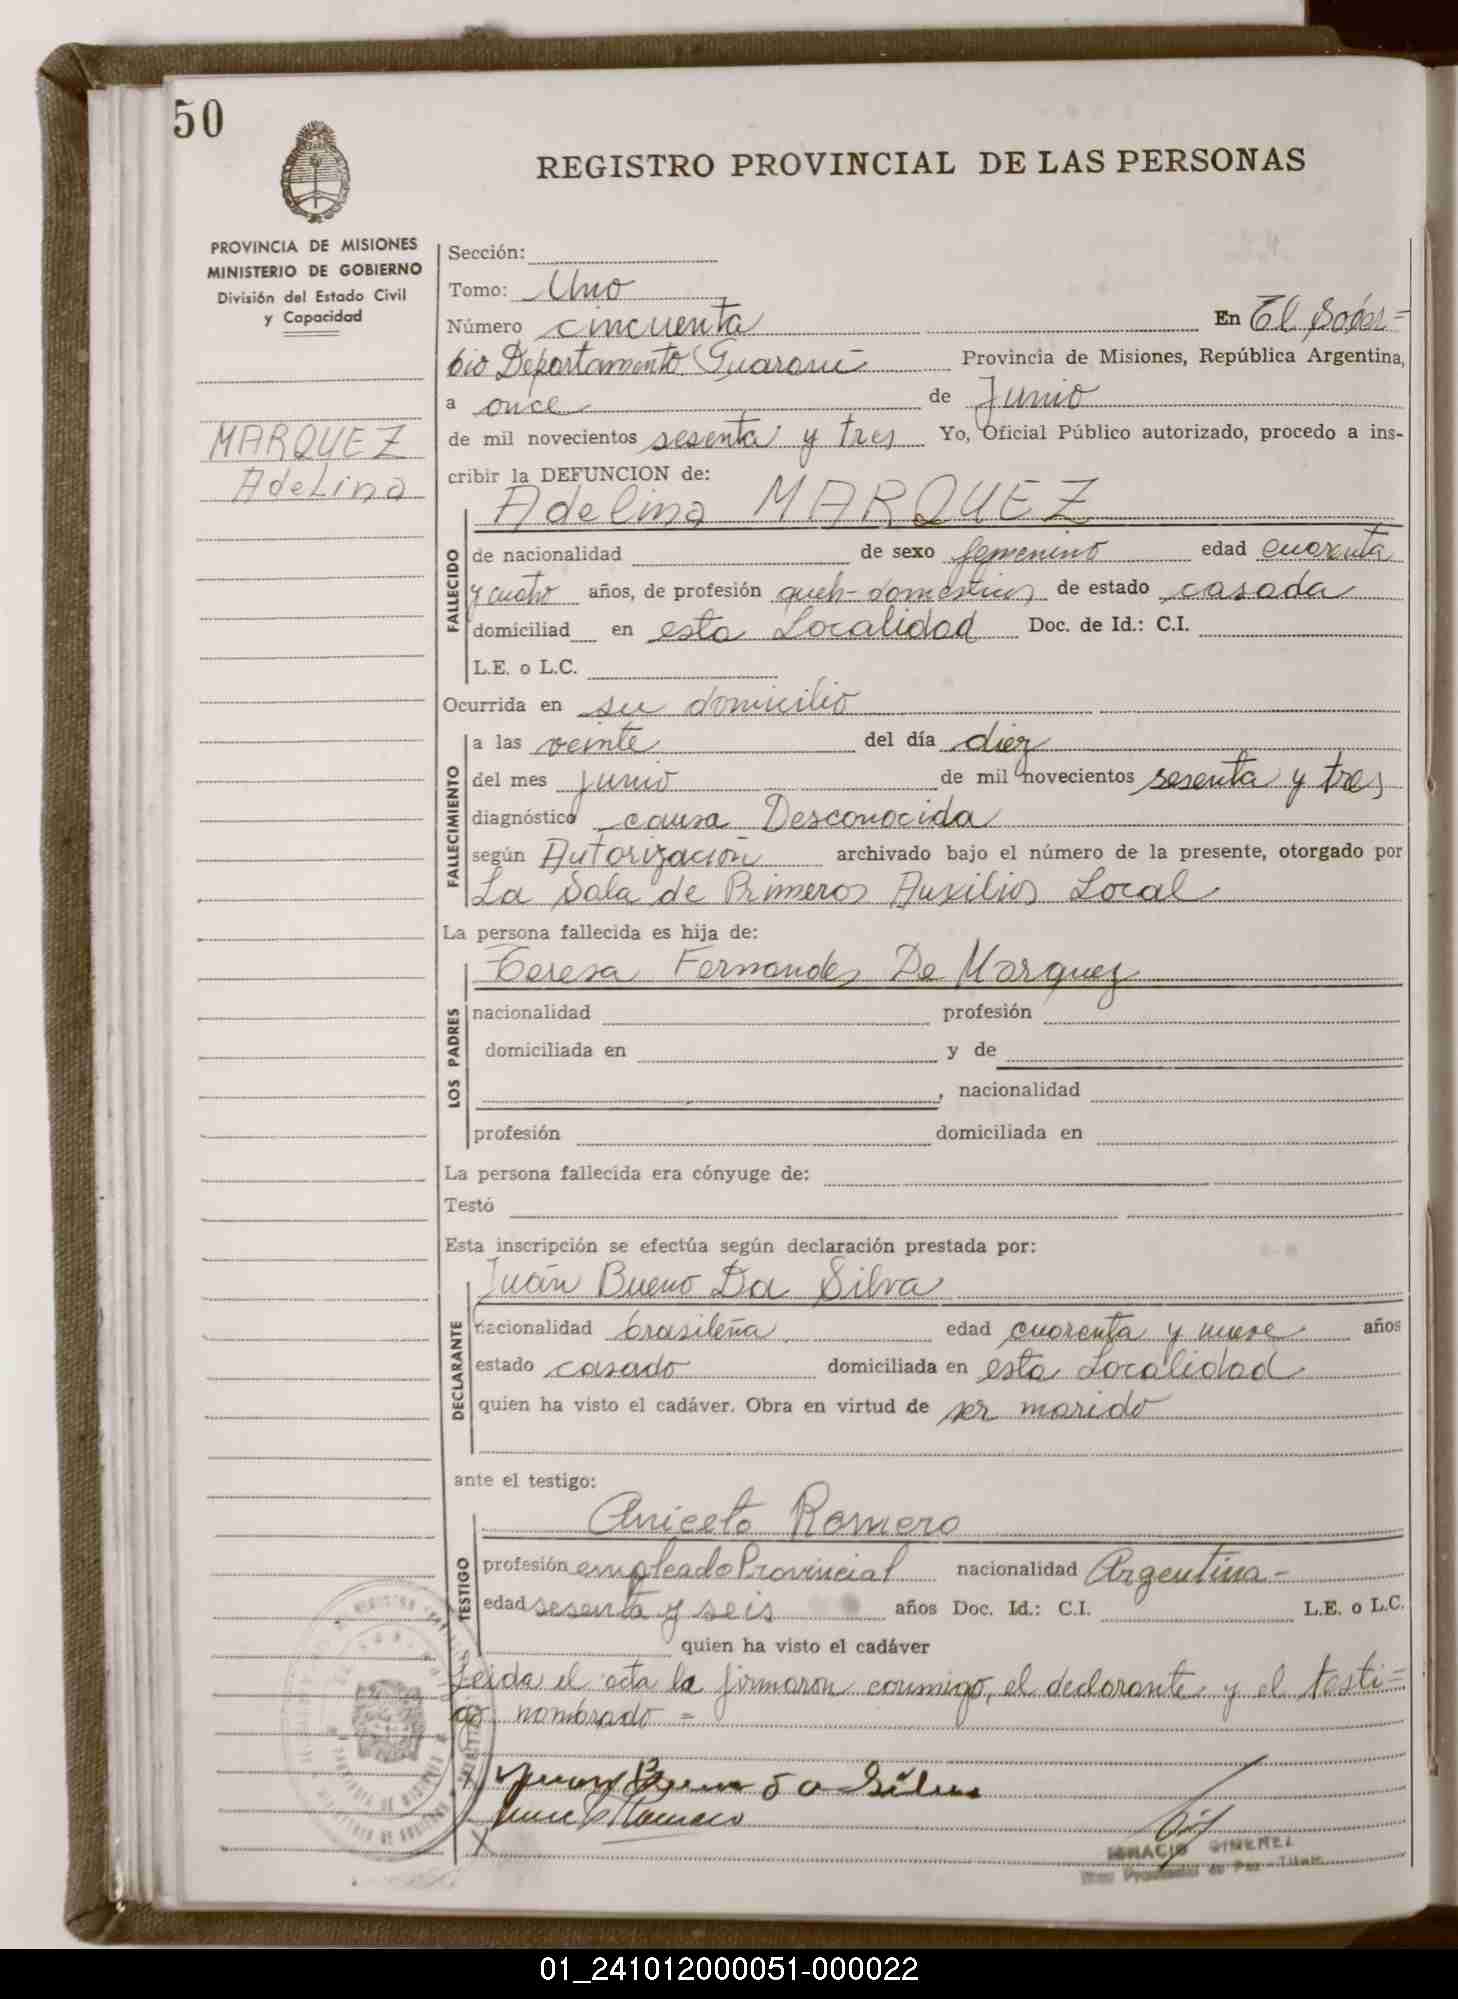 50
REGISTRO PROVINCIAL DE LAS PERSONAS
PROVINCIA DE MISIONES
MINISTERIO DE GOBIERNO
División del Estado Civil
y Capacidad
MARQUEZ
Adelina
Sección:
Tomo: Uno
Número cincuenta En El Sober=
bio Departamento Guaraní Provincia de Misiones, República Argentina,
a once de Junio
de mil novecientos sesenta y tres Yo, Oficial Público autorizado, procedo a ins-
cribir la DEFUNCION de:
Adelina MARQUEZ
FALLECIDO
de nacionalidad de sexo femenino edad cuarenta
y cuatro años, de profesión queh-domesticos de estado casada
domiciliad en esta Localidad Doc. de Id.: C.I.
L.E. o L.C.
Ocurrida en su domicilio
FALLECIMIENTO
a las veinte del día diez
del mes junio de mil novecientos sesenta y tres
diagnóstico causa Desconocida
según Autorización archivado bajo el número de la presente, otorgado por
La Sala de Primeros Auxilios Local
La persona fallecida es hija de:
LOS PADRES
Teresa Fernandes De Marquez
nacionalidad profesión
domiciliada en y de
, nacionalidad
profesión domiciliada en
La persona fallecida era cónyuge de:
Testó
Esta inscripción se efectúa según declaración prestada por:
DECLARANTE
Juán Bueno Da Silva
nacionalidad brasileña edad cuarenta y nueve años
estado casado domiciliada en esta Localidad
quien ha visto el cadáver. Obra en virtud de ser marido
ante el testigo:
TESTIGO
Aniceto Romero
profesión empleado Provincial nacionalidad Argentina-
edad sesenta y seis años Doc. Id.: C.I. L.E. o L.C.
quien ha visto el cadáver
Leida el acta la firmaron conmigo, el declarante y el testi=
go nombrado =
Juan Bueno da Silva
Romero
IGNACIO GIMENEZ
01_241012000051-000022